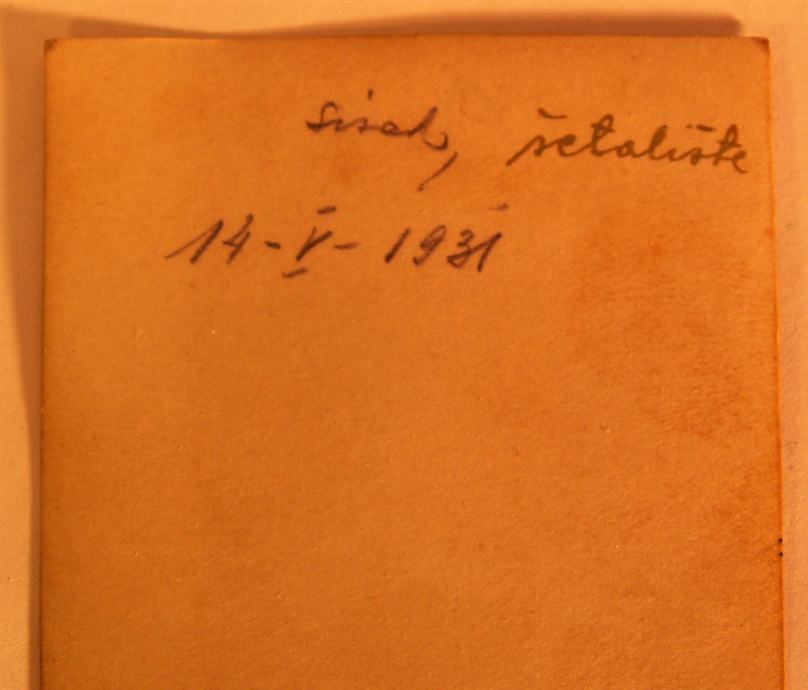 Sisak, šetalište
14-V-1931